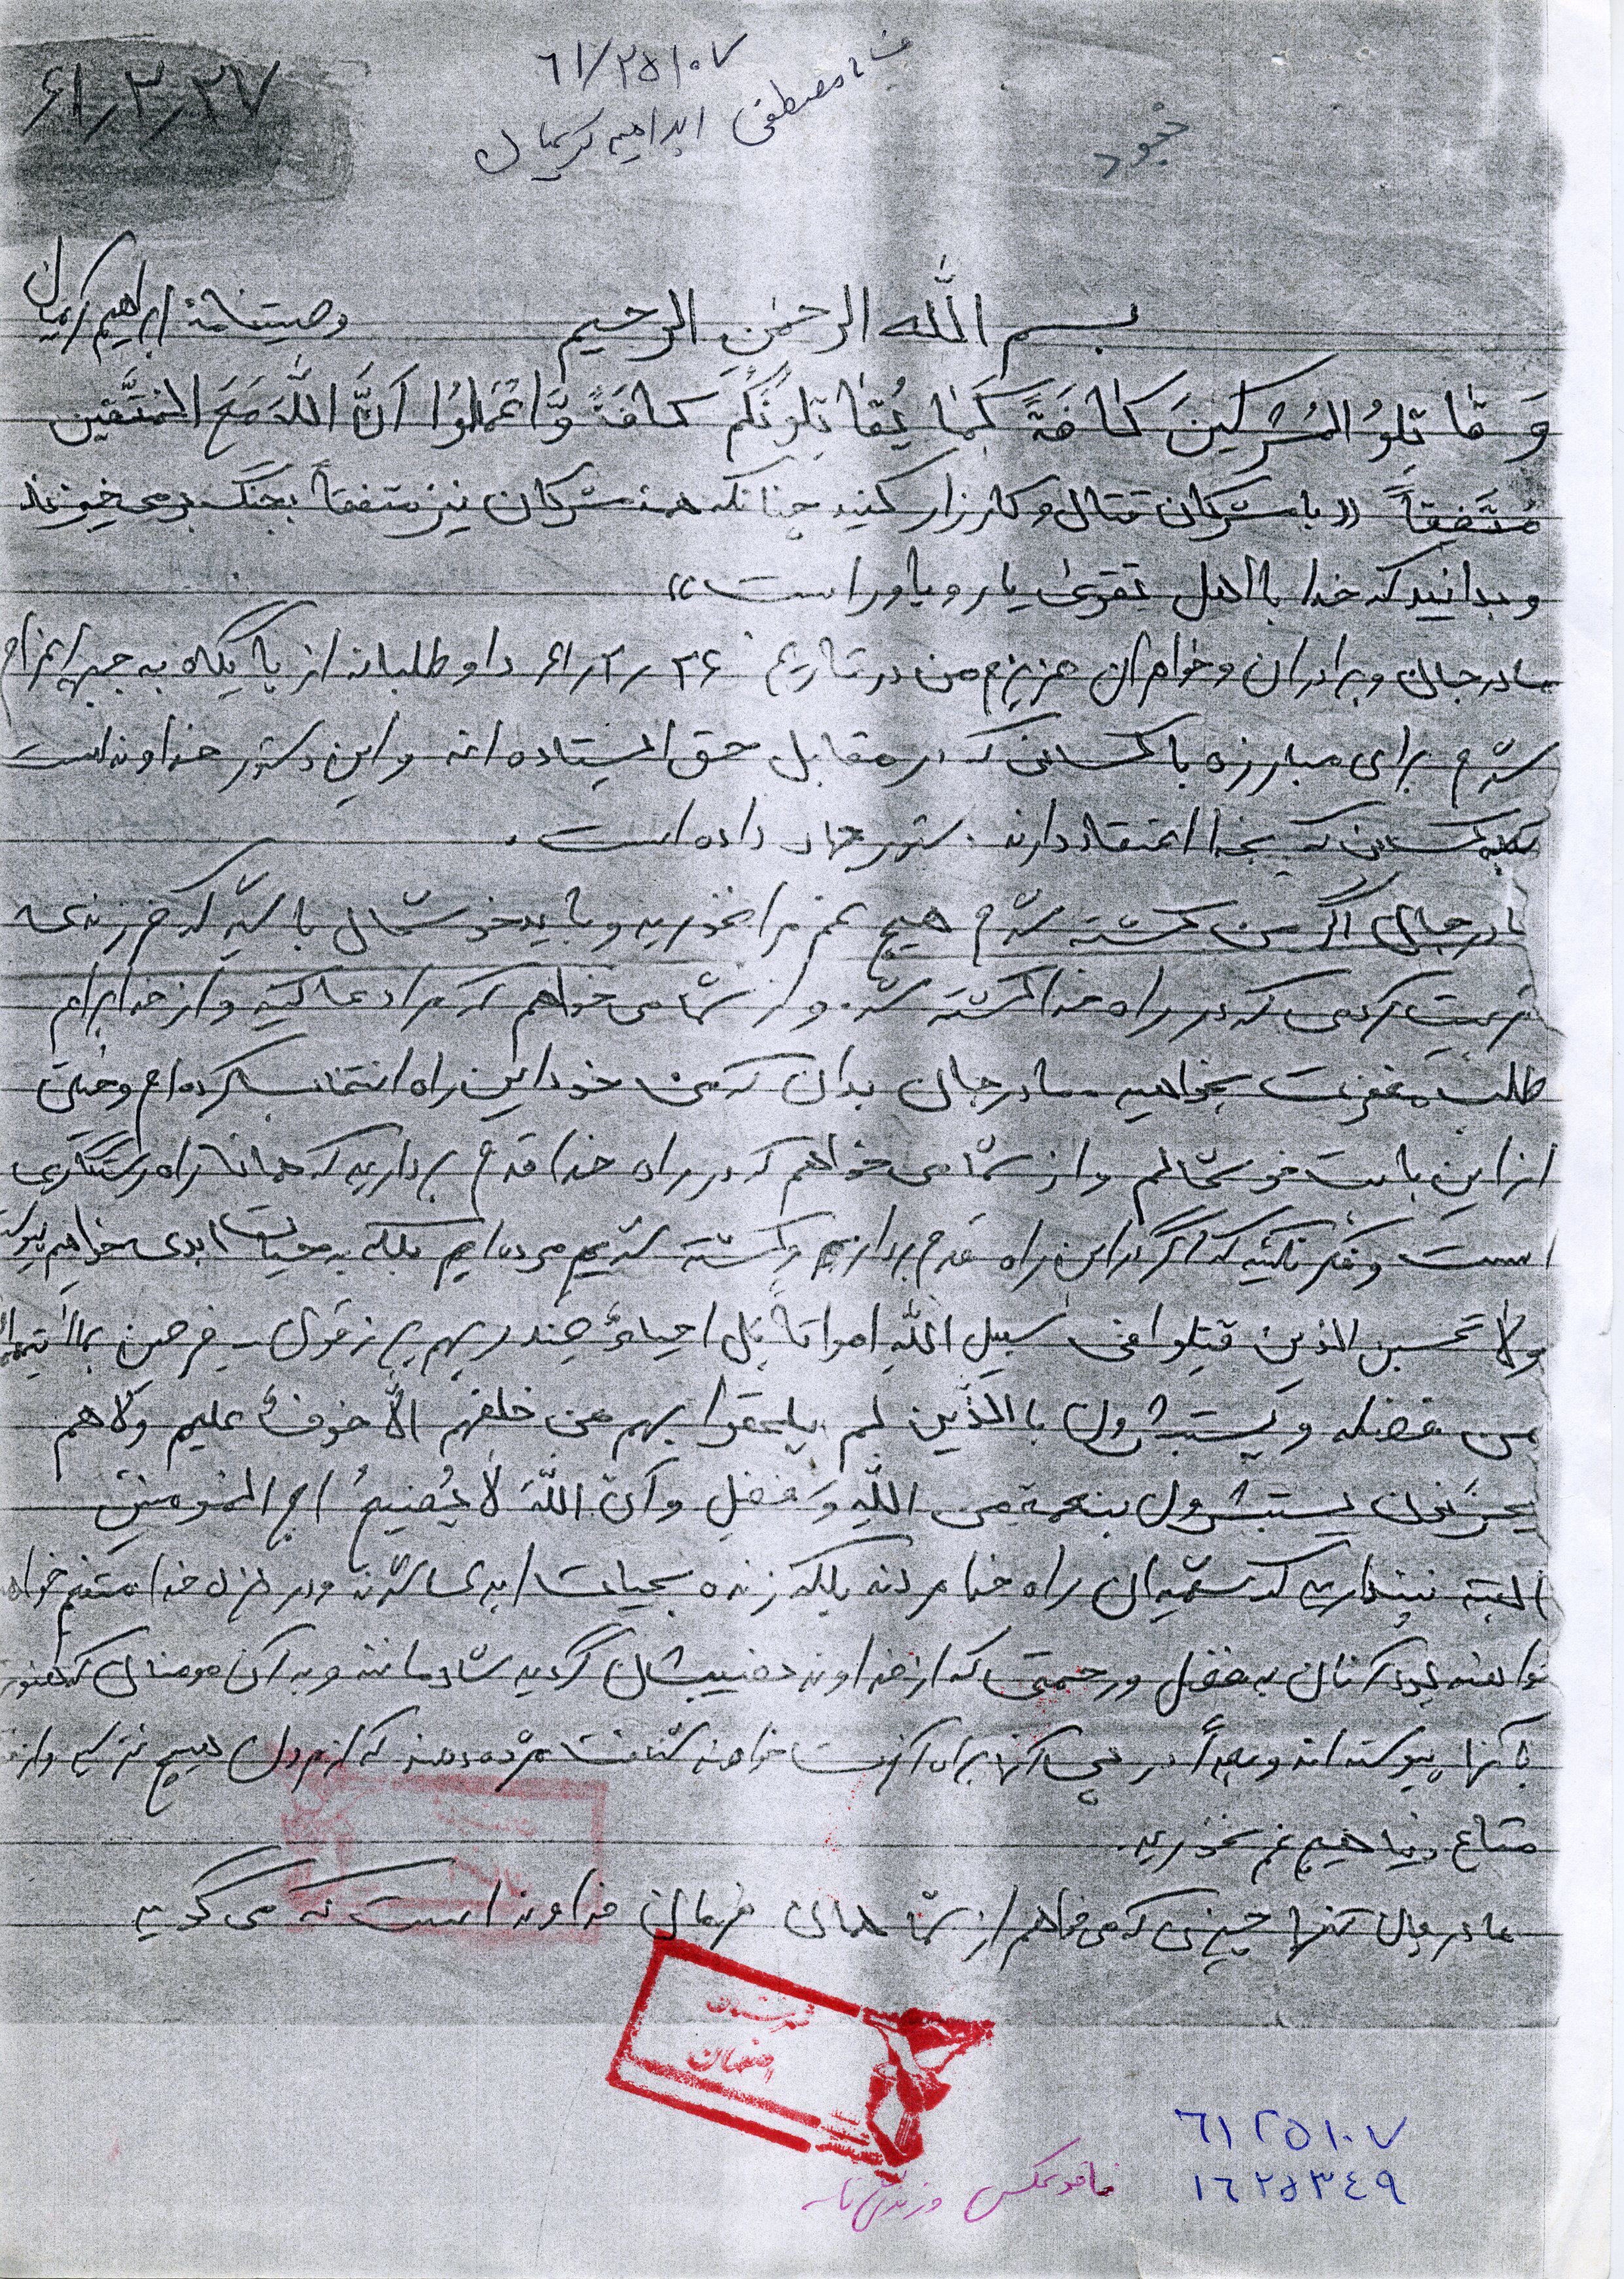 ۶۱٫۲٫۲۷
۶۱/۲۵۱۰۷
مصطفی ابراهیم کریمیان
بسم اللّه الرحمٰنِ الرحیم
وصیتنامهٔ ابراهیم کریمیان
وَ قاتلُو المُشرکینَ کافةً کَمٰا یُقاتِلُونَکُم کافةً وَّاعْمَلوُا اَنَّ اللّهَ مَعَ المُتَّقین
مُتَّفقاً «با مشرکان قتال و کارزار کنید چنانکه همه مشرکان نیز متفقاً بجنگ برمی‌خیزند
و بدانید که خدا با اهل تقوی یار و یاور است»
مادرجان و برادران و خواهران عزیزم من در تاریخ ۶۱٫۲٫۲۶ داوطلبانه از پایگاه به جبهه اعزام
شدم برای مبارزه با کسانی که در مقابل حق ایستاده‌اند و این دستور خداوند است
بکلیه کسانی که بخدا اعتقاد دارند دستور جهاد داده است.
مادرجان اگر من کشته شدم هیچ غم مرا نخورید و باید خوشحال باشید که فرزندی
تربیت کردی که در راه خدا کشته شد. و از شما می‌خواهم که مرا دعا کنید و از خدا برایم
طلب مغفرت بخواهید. مادرجان بدان که من خود این راه انتخاب کرده‌ام و خیلی
از این بابت خوشحالم و از شما می‌خواهم که در راه خدا قدم بردارید که همانا راه رستگاری
است و فکر نکنید که اگر در این راه قدم برداریم و کشته شدیم مرده‌ایم بلکه به حیات ابدی خواهیم پیوست
ولا تحسبن الذین قتلوا فی سبیل اللّه امواتاً بَل احیاءٌ عند ربهم یرزقون ـ فرحین بما اتیهم اللّه
من فضله و یستبشرون باالذّین لم یلحقوا بهم من خلفهم الّا خوفٌ علیهم ولاهم
یحزنون یستبشرون بنعمة من اللّهِ وَ فضل و اَنَّ اللّهَ لا یُضیعُ اجر المومنین
البته نپندارید که شهیدان راه خدا مردند بلکه زنده بحیات ابدی شدند و در نزد خدا متنعم خواهند
بود آنان به فضل و رحمتی که از خداوند نصیبشان گردید شادمانند و به آن مومنان که هنوز
با آنها نپیوسته‌اند و بعداً در پی آنها برای آخرت خواهند شتافت مژده دهند که از مردن هیچ نترسید و از
متاع دنیا هیچ غم نخورید.
مادرجان تنها چیزی که می‌خواهم از شما همان فرمان خداوند است که می‌گوید
اصفهان
۶۱۲۵۱۰۷
۱۶۲۵۳۴۹
فاقد عکس و زندگی‌نامه